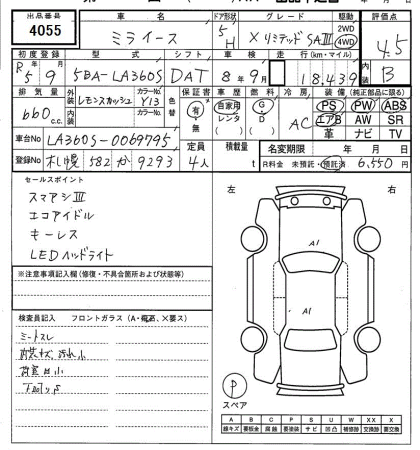 出品番号 車名 ドア形状 グレード 駆動 評価点
4055 ミライース 5 H X リミテッド SAⅢ 2WD 4WD 4.5
初度登録 型式 シフト 車検 走行 (km・マイル) 内装 B
R5 9 5BA-LA360S DAT 8年9月 18,439
排気量 外装 カラーNo. 色替 カラーNo. 保証書 車歴 燃料 冷房 装備 (純正部品に限る)
660 c.c. レモンスカッシュ Y13 有・無 自家用 レンタ G D AC PS PW ABS
エアB AW SR
革 ナビ TV
車台No LA360S-0069795 定員 積載量 名変期限 年 月 日
登録No 札幌 582 か 9293 4人 t R料金 未預託・預託済 6,550円
セールスポイント
スマアシⅢ
エコアイドル
キーレス
LEDヘッドライト
左 右
A1
A1
※注意事項記入欄(修復・不具合箇所および状態等)
検査員記入 フロントガラス(A・飛石、X要ス)
シートスレ
内装キズ、汚れ小
P
スペア
A B C P S U W XX X
線キズ 要板金 腐蝕 要塗装 サビ 凹凸 補修跡 交換跡 要交換